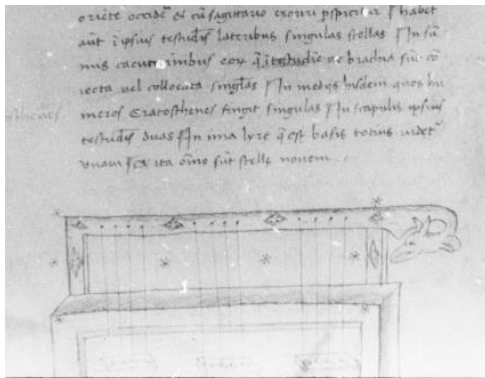 oriēte occidēs et cū sagittario exoriri pspicitur Habet
aūt ī ipsius testudīs lateribus singulas stellas In sū
mis cacuminibus eoꝝ q̄ ī testudīe ac brachia sūt cō
iecta vel collocata singlas In medijs hisdem quos hu
meros Eratosthenes fingit singulas In scapulis ipsius
testudīs duas In ima lyre q̄ est basis totius videtᷣ
vnam Et ita oīno sūt stelle novem